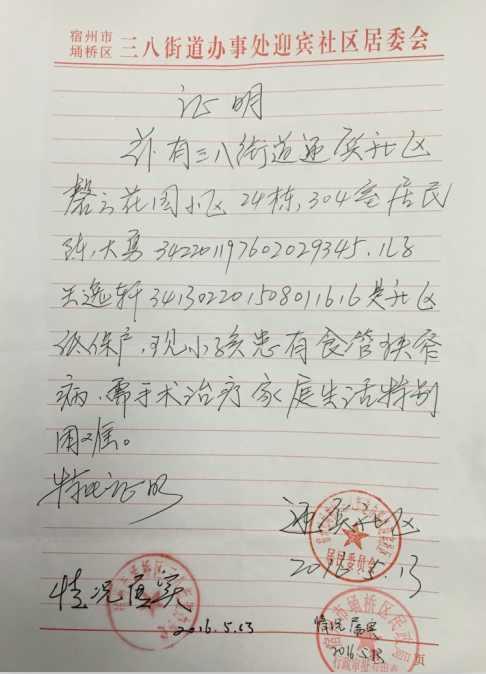 宿州市
埇桥区 三八街道办事处迎宾社区居委会
证明
兹有三八街道迎宾社区
馨云花园小区24栋,304室居民
陈大勇342201197602029345.儿子
逸轩341302201508011616是社区
低保户,现小孩患有食管狭窄
病,需手术治疗家庭生活特别
困难。
特此证明
迎宾社区
居民委员会
2016.5.13
情况属实
2016.5.13
情况属实
2016.5.13
页